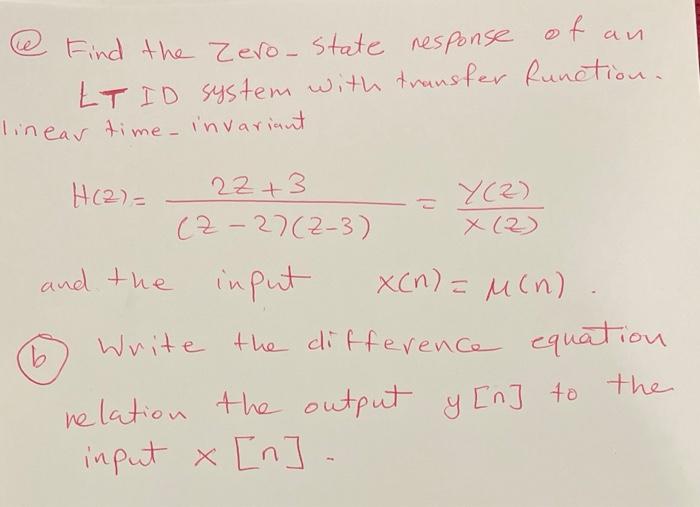 (a) Find the Zero-State response of an
LTID system with transfer function.
linear time-invariant
H(z) = (2z+3) / ((z-2)(z-3)) = Y(z) / X(z)
and the input x(n) = μ(n).
(b) Write the difference equation
relation the output y[n] to the
input x[n].